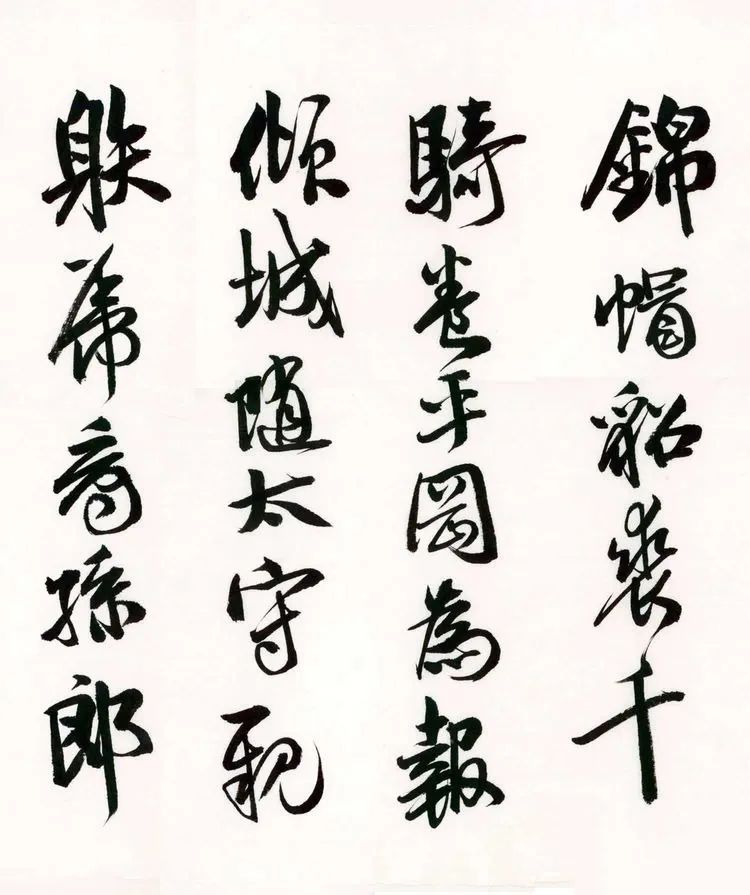 錦帽貂裘千
騎卷平岡為報
傾城隨太守親
射虎看孫郎